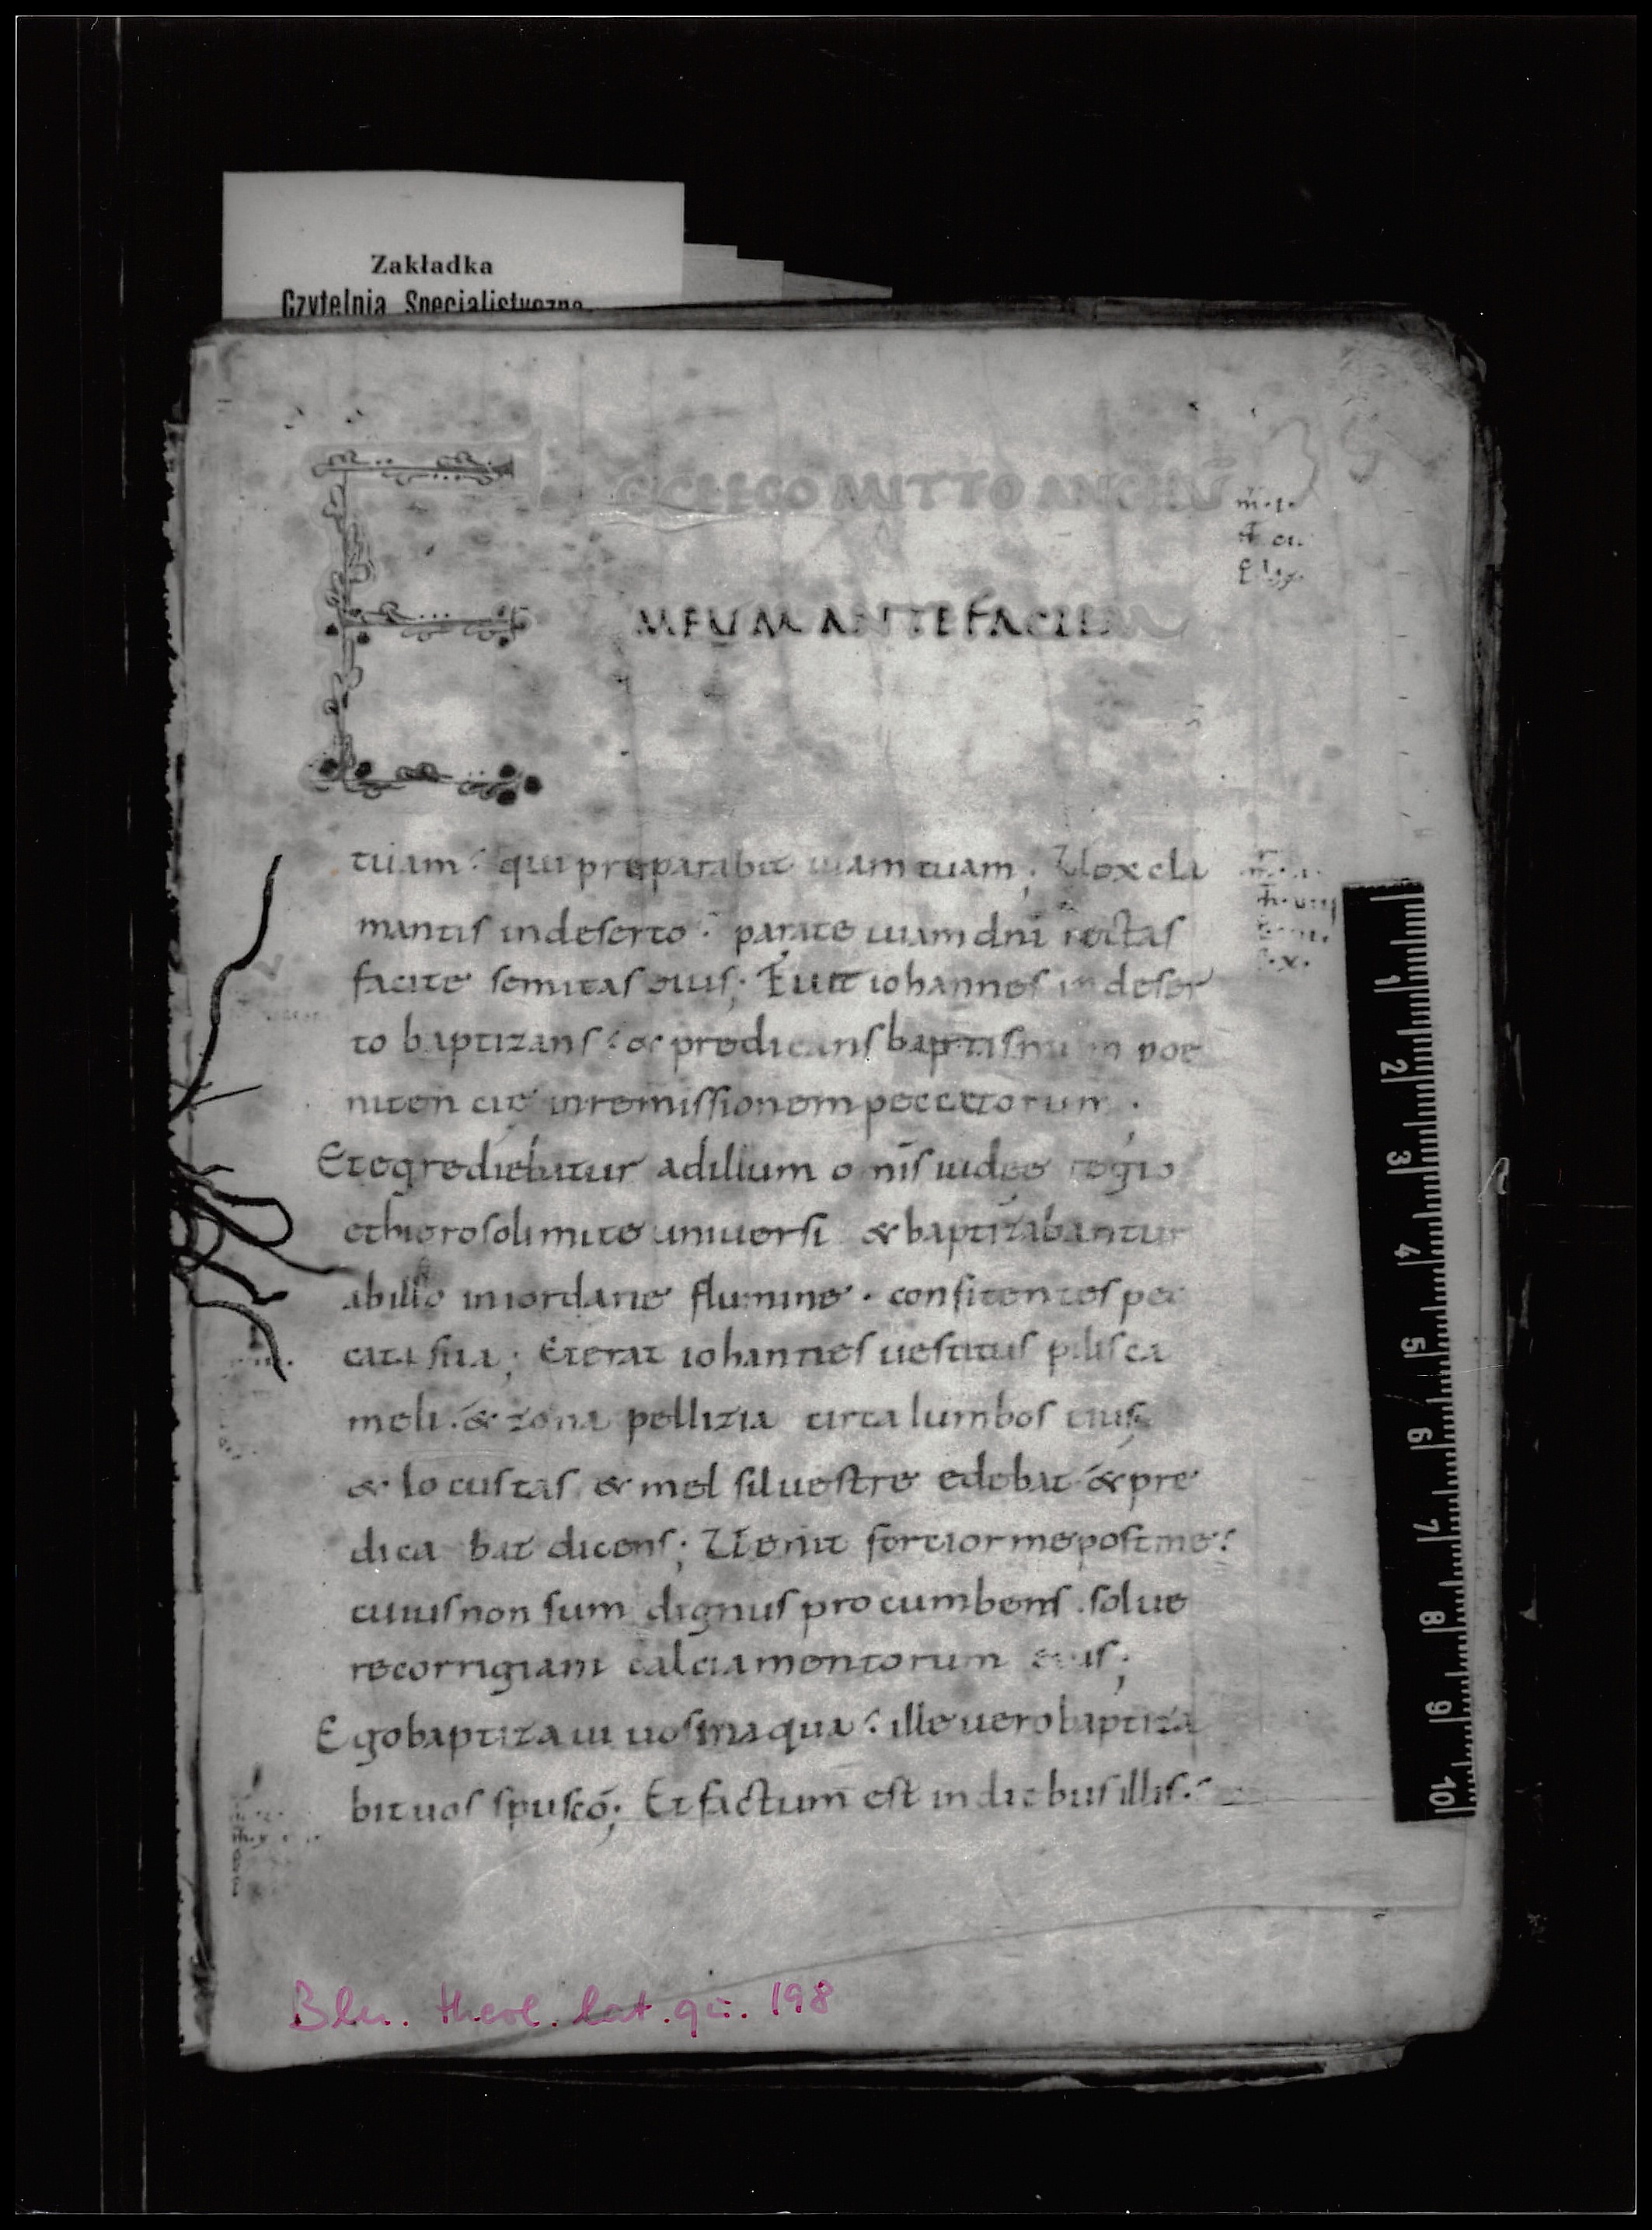 Zakładka
Czytelnia Specjalistyczna
E CCE EGO MITTO ANGELŪ
MEUM ANTE FACIEM
tuam: qui preparabit uiam tuam; Uox cla
mantis in deserto: parate uiam dnī rectas
facite semitas eius; Fuit iohannes in deser
to baptizans: & predicans baptismum poe
nitencię in remissionem peccatorum;
Et egrediebatur ad illum omīs iudeę regio
et hierosolimite uniuersi & baptizabantur
ab illo in iordane flumine. confitentes pec
cata sua; Et erat iohannes uestitus pilis ca
meli. & zona pellizia circa lumbos eius;
& locustas & mel siluestre edebat & pre
dicabat dicens; Uenit fortior me post me:
cuius non sum dignus procumbens solue
re corrigiam calciamentorum eius;
Ego baptizaui uos in aqua: ille uero baptiza
bit uos spū scō; Et factum est in diebus illis:
1
2
3
4
5
6
7
8
9
10
Bln. theol. lat. qu. 198